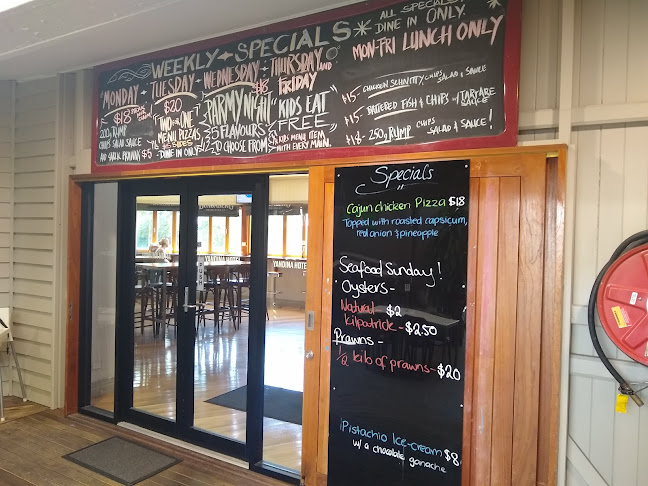 WEEKLY SPECIALS
ALL SPECIALS
DINE IN ONLY.
MON-FRI LUNCH ONLY
MONDAY - TUESDAY - WEDNESDAY - THURSDAY AND
FRIDAY
$18
200g RUMP
CHIPS SALAD SAUCE
AND GARLIC PRAWNS $5
$20
"TWO FOR ONE"
MENU PIZZAS
DINE IN ONLY
$18
"PARMY NIGHT"
5 FLAVOURS
TO CHOOSE FROM
"KIDS EAT
FREE"
KIDS MENU ITEM
WITH EVERY MAIN.
$15 - CHICKEN SCHNITTY CHIPS SALAD & SAUCE
$15 - BATTERED FISH & CHIPS W/ TARTARE
SAUCE
$18 - 250g RUMP CHIPS SALAD & SAUCE!
Specials
Cajun chicken Pizza $18
Topped with roasted capsicum,
red onion & pineapple
Seafood Sunday!
Oysters -
Natural - $2
Kilpatrick - $2.50
Prawns -
1/2 kilo of prawns - $20
Pistachio Ice-cream $8
w/ a chocolate ganache
YANDINA HOTEL
YANDINA HOTEL